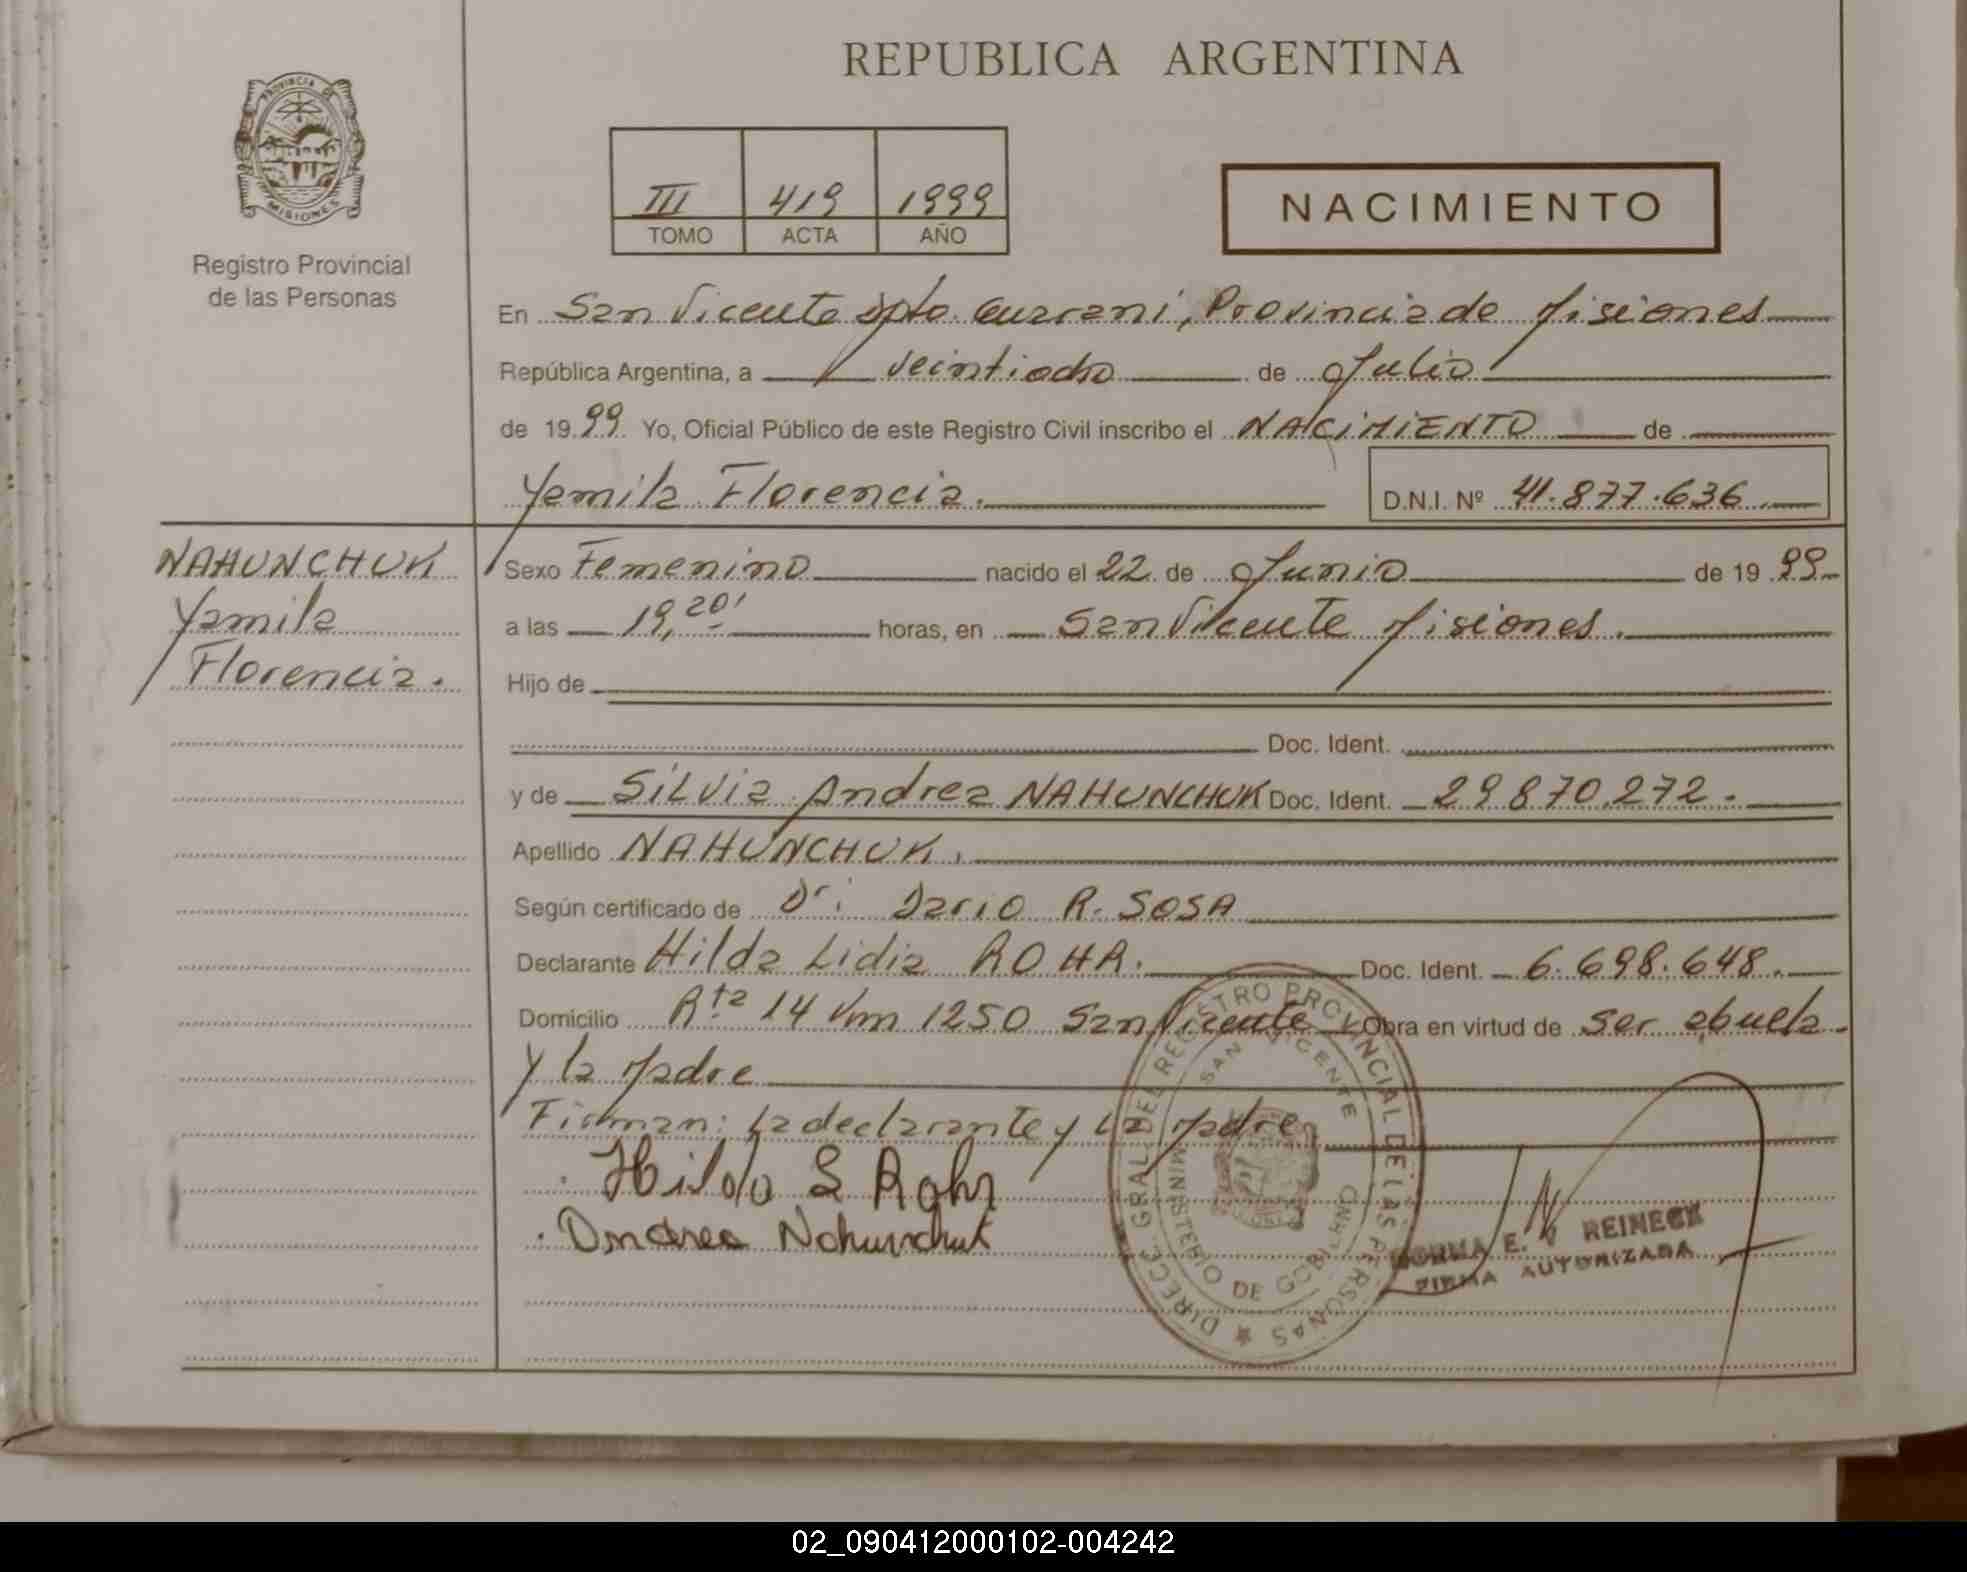 REPUBLICA ARGENTINA
PROVINCIA DE
MISIONES
Registro Provincial
de las Personas
III 419 1999
TOMO ACTA AÑO
NACIMIENTO
En San Vicente Dpto. Guarani, Provincia de Misiones
República Argentina, a veintiocho de Julio
de 1999 Yo, Oficial Público de este Registro Civil inscribo el NACIMIENTO de
Yamila Florencia.
D.N.I. Nº 41.877.636.
NAHUNCHUK
Yamila
Florencia.
Sexo Femenino nacido el 22 de Junio de 1999
a las 19,20' horas, en San Vicente Misiones.
Hijo de
Doc. Ident.
y de SILVia Andrea NAHUNCHUK Doc. Ident. 29870.272.
Apellido NAHUNCHUK.
Según certificado de Dr: Dario R. SOSA
Declarante Hilda Lidia ROHR. Doc. Ident. 6.698.648.
Domicilio Rta 14 Km 1250 San Vicente Obra en virtud de ser abuela
y la Madre
Firman: La declarante y La Madre
Hilda L Rohr
Andrea Nahunchuk
DIRECC. GRAL. DEL REGISTRO PROVINCIAL DE LAS PERSONAS
SAN VICENTE
MINISTERIO DE GOBIERNO
NORMA E. V REINECK
FIRMA AUTORIZADA
02_090412000102-004242